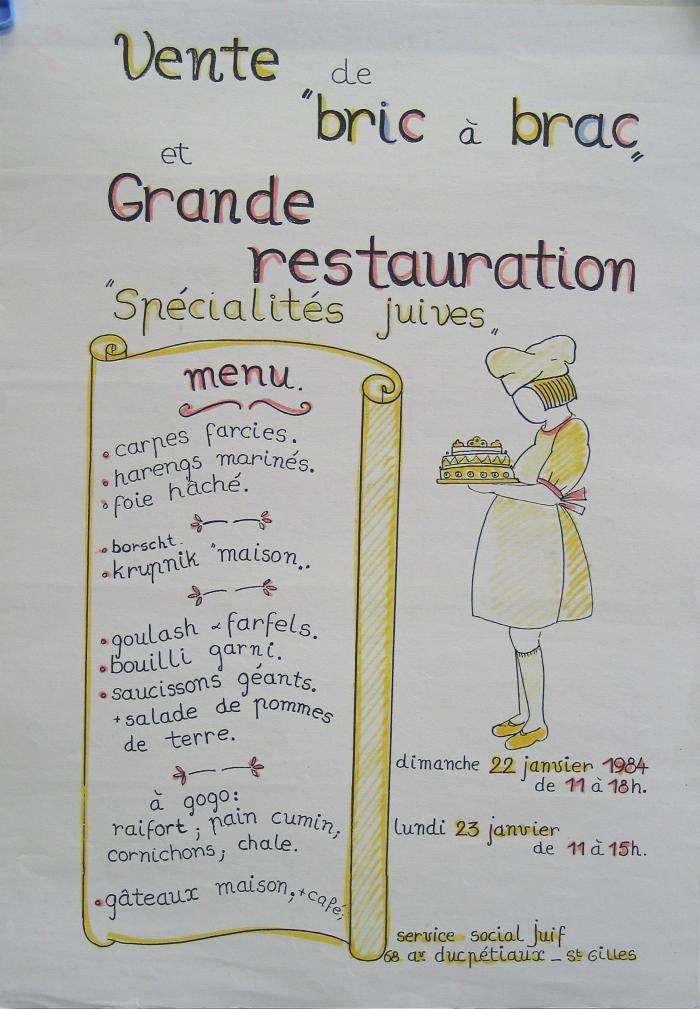 Vente de
"bric à brac"
et
Grande
restauration
"Spécialités juives"
menu.
• carpes farcies.
• harengs marinés.
• foie hâché.
• borscht.
• krupnik "maison..
• goulash & farfels.
• bouilli garni.
• saucissons géants.
+ salade de pommes
de terre.
à gogo:
raifort; pain cumin,
cornichons; chale.
• gâteaux maison, + café;
dimanche 22 janvier 1984
de 11 à 18h.
lundi 23 janvier
de 11 à 15h.
service social juif
68 av ducpétiaux _ St Gilles